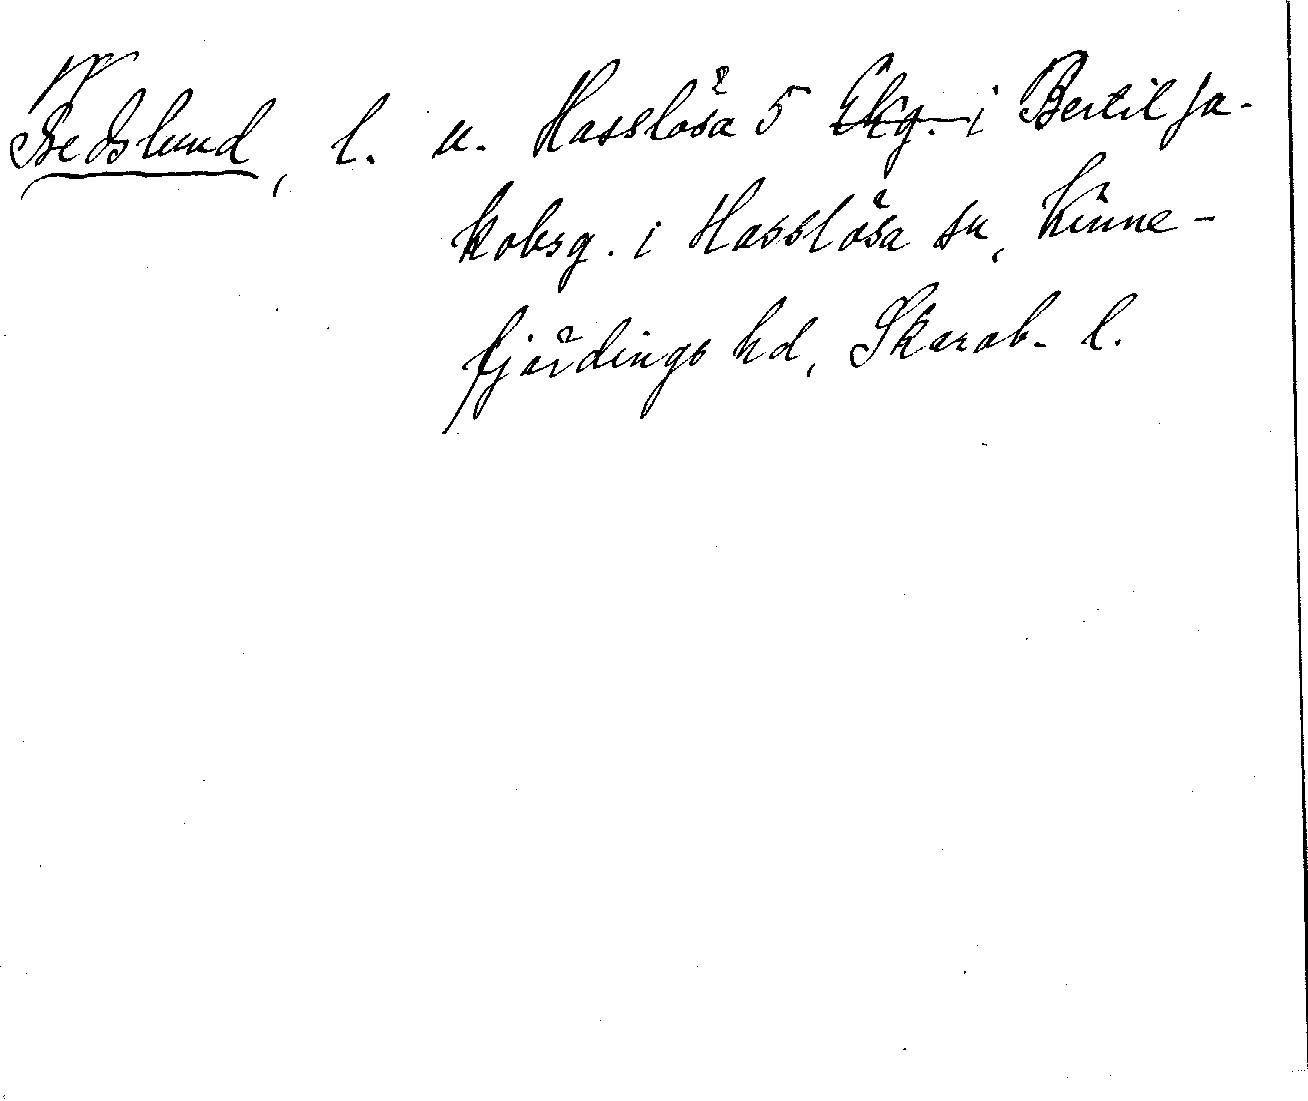 Fredslund, l. u. Hasslösa 5 Ekg. i Bertil Ja-
kobsg. i Hasslösa sn, Kinne-
fjärdings hd, Skarab. l.